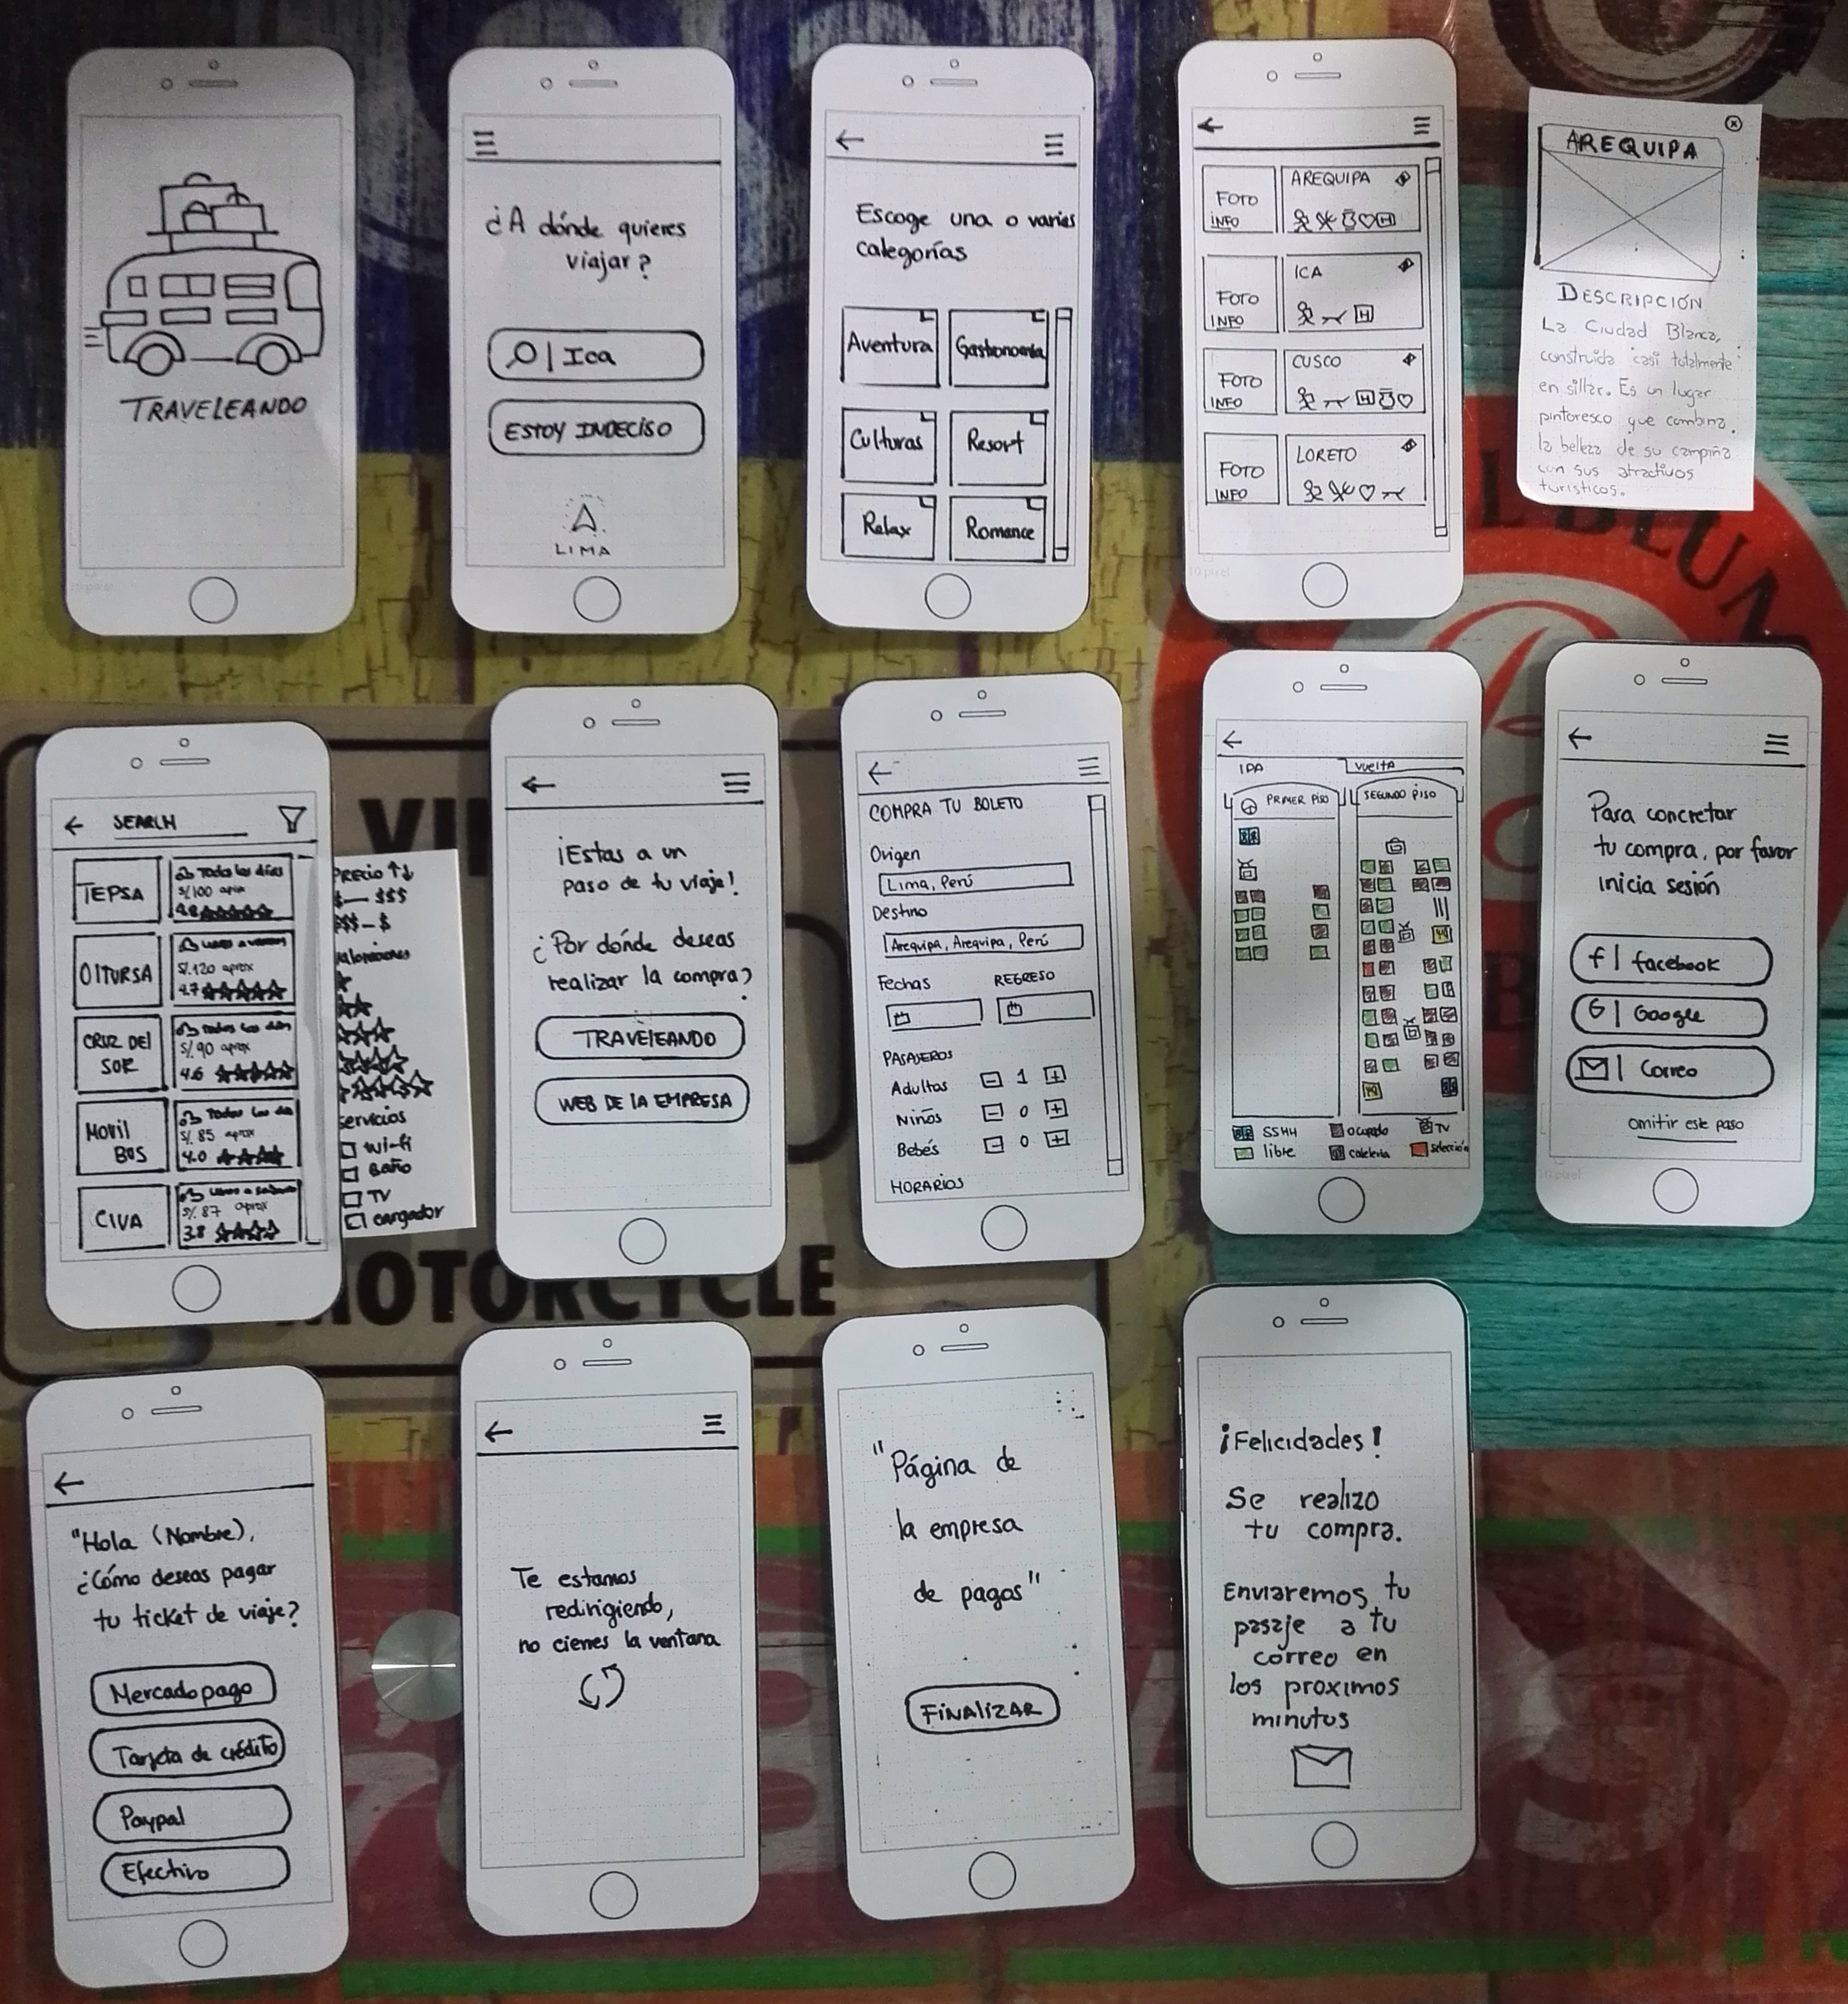 TRAVELEANDO
¿A dónde quieres
viajar?
Ica
ESTOY INDECISO
LIMA
Escoge una o varias
categorías
Aventura
Gastronomía
Culturas
Resort
Relax
Romance
FOTO
INFO
AREQUIPA
FOTO
INFO
ICA
H
FOTO
INFO
CUSCO
H
FOTO
INFO
LORETO
AREQUIPA
DESCRIPCIÓN
La Ciudad Blanca,
construida casi totalmente
en sillar. Es un lugar
pintoresco que combina
la belleza de su campiña
con sus atractivos
turísticos.
SEARCH
TEPSA
Todos los días
S/100 aprox
4.8
OLTURSA
S/.120 aprox
4.7
CRUZ DEL
SUR
Todos los días
S/. 90 aprox
4.6
MOVIL
BUS
Todos los
S/. 85 aprox
4.0
CIVA
S/. 87 aprox
3.8
PRECIO
$ — $$$
$$$ — $
Valoriciones
Servicios
Wi-fi
Baño
TV
cargador
¡Estas a un
paso de tu viaje!
¿Por dónde deseas
realizar la compra?
TRAVELEANDO
WEB DE LA EMPRESA
COMPRA TU BOLETO
Origen
Lima, Perú
Destino
Arequipa, Arequipa, Perú
Fechas
REGRESO
PASAJEROS
Adultos - 1 +
Niños - 0 +
Bebés - 0 +
HORARIOS
IDA
VUELTA
PRIMER PISO
SEGUNDO PISO
SSHH
ocupado
TV
libre
cafetería
selección
Para concretar
tu compra, por favor
inicia sesión
f | facebook
G | Google
Correo
omitir este paso
"Hola (Nombre),
¿Cómo deseas pagar
tu ticket de viaje?
Mercadopago
Tarjeta de crédito
Paypal
Efectivo
Te estamos
redirigiendo,
no cierres la ventana
"Página de
la empresa
de pagos"
FINALIZAR
¡Felicidades!
Se realizo
tu compra.
Enviaremos tu
pasaje a tu
correo en
los proximos
minutos
VI
MOTORCYCLE